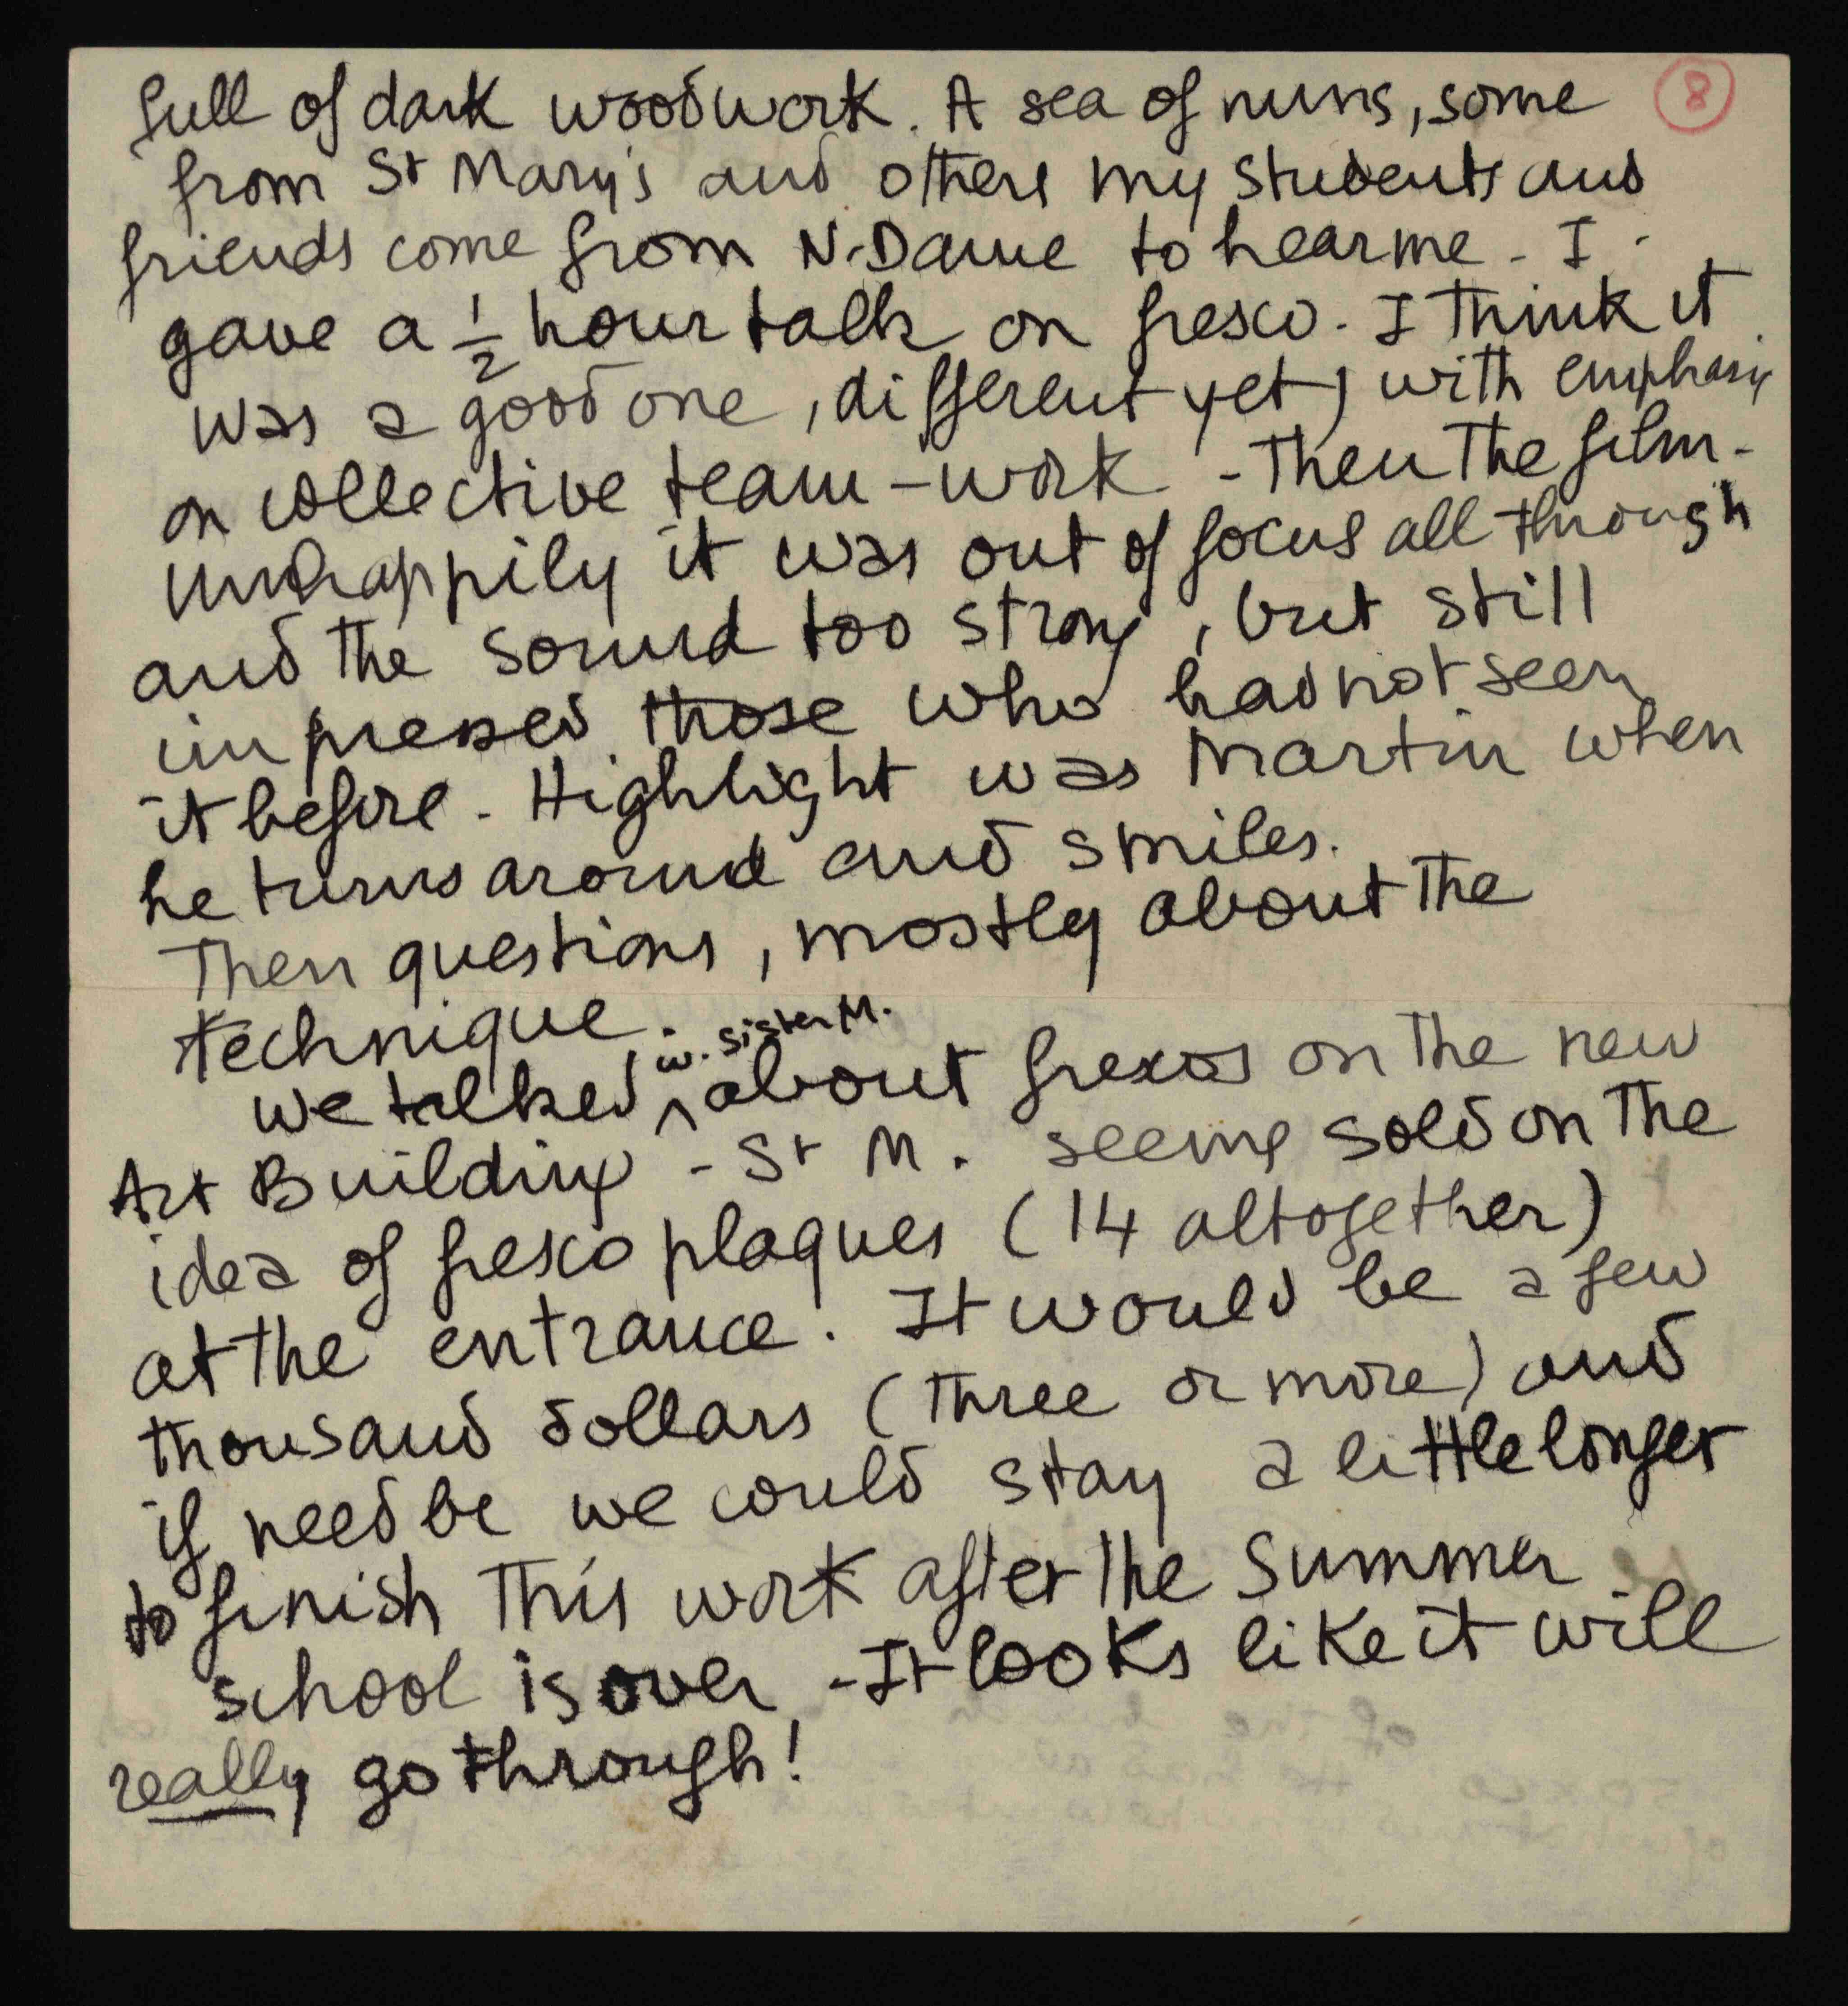 full of dark woodwork. A sea of nuns, some 8
from St Mary's and others my students and
friends come from N.Dame to hear me - I
gave a 1/2 hour talk on fresco. I think it
was a good one, different yet, with emphasis
on collective team-work - Then the film -
Unhappily it was out of focus all through
and the sound too strong, but still
impressed those who had not seen
it before - Highlight was Martin when
he turns around and smiles.
Then questions, mostly about the
technique.
w. Sister M.
We talked ^ about frescos on the new
Art Building - St M. seems sold on the
idea of fresco plaques (14 altogether)
at the entrance. It would be a few
thousand dollars (three or more) and
if need be we could stay a little longer
to finish this work after the Summer
school is over. - It looks like it will
really go through!